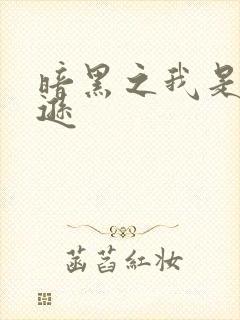 暗黑之我是
逊
菡萏红妆